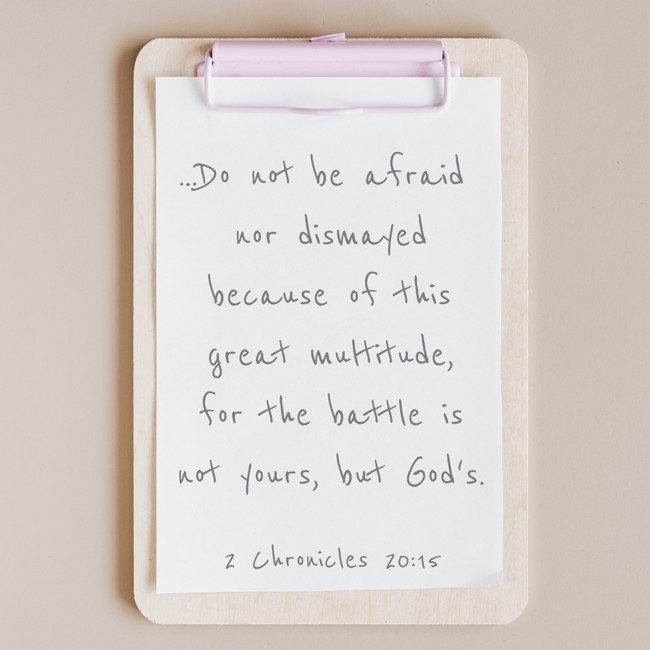 ...Do not be afraid
nor dismayed
because of this
great multitude,
for the battle is
not yours, but God's.
2 Chronicles 20:15